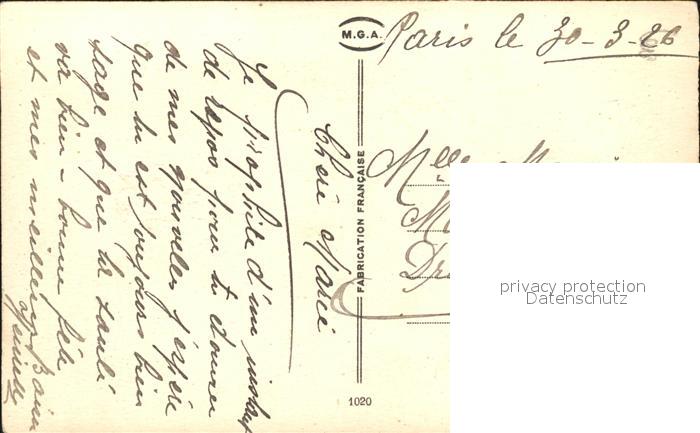 M.G.A.
Paris le 30-3-26
Mlle
FABRICATION FRANÇAISE
1020
privacy protection
Datenschutz
Chère Marie
Je profite d'un instant
de repos pour te donner
de mes nouvelles j'espère
que tu est toujours bien
sage et que ta santé
va bien - bonne fête
et mes meilleurs